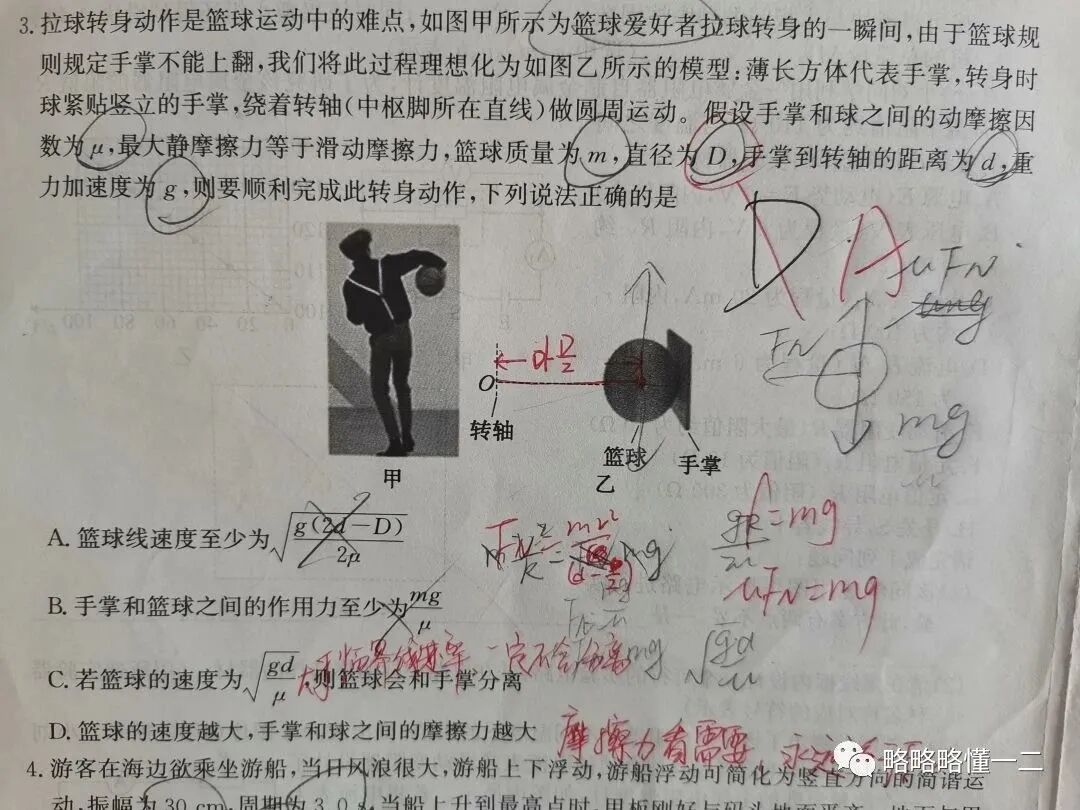 3. 拉球转身动作是篮球运动中的难点,如图甲所示为篮球爱好者拉球转身的一瞬间,由于篮球规
则规定手掌不能上翻,我们将此过程理想化为如图乙所示的模型:薄长方体代表手掌,转身时
球紧贴竖立的手掌,绕着转轴(中枢脚所在直线)做圆周运动。假设手掌和球之间的动摩擦因
数为μ,最大静摩擦力等于滑动摩擦力,篮球质量为m,直径为D,手掌到转轴的距离为d,重
力加速度为g,则要顺利完成此转身动作,下列说法正确的是
D A
μFN
FN
mg
d-D/2
O
转轴
篮球
手掌
甲
乙
A. 篮球线速度至少为√(g(2d-D)/2μ)
f=mg
B. 手掌和篮球之间的作用力至少为mg/μ
μFN=mg
大于临界线速率 一定不会分离
C. 若篮球的速度为√(gd/μ),则篮球会和手掌分离
D. 篮球的速度越大,手掌和球之间的摩擦力越大
摩擦力看需要,永远
略略略懂一二
4. 游客在海边欲乘坐游船,当日风浪很大,游船上下浮动,游船浮动可简化为竖直方向的简谐运
动,振幅为30 cm,周期为3.0 s,当船上升到最高点时,甲板刚好与码头地面平齐